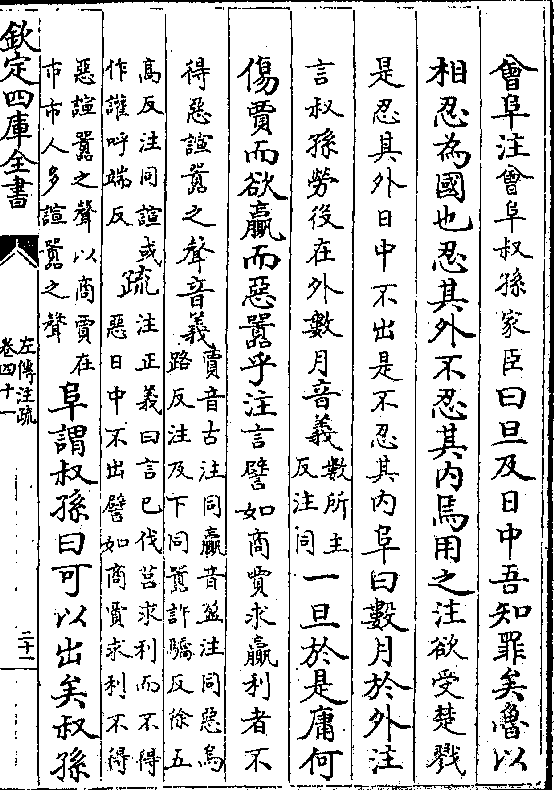 曾阜注曾阜叔孫家臣曰旦及日中吾知罪矣魯以
相忍為國也忍其外不忍其内焉用之注欲受楚戮
是忍其外日中不出是不忍其内阜曰數月於外注
言叔孫勞役在外數月音義數所主
反注同一旦於是庸何
傷賈而欲贏而惡囂乎注言譬如商賈求贏利者不
得惡諠囂之聲音義賈音古注同贏音盈注同惡烏
路反注及下同囂許驕反徐五
高反注同諠或
作讙呼端反疏注正義曰言已伐莒求利而不得
惡日中不出譬如商賈求利不得
惡諠囂之聲以商賈在
市市人多諠囂之聲阜謂叔孫曰可以出矣叔孫
欽定四庫全書
左傳注疏
卷四十一
二十一